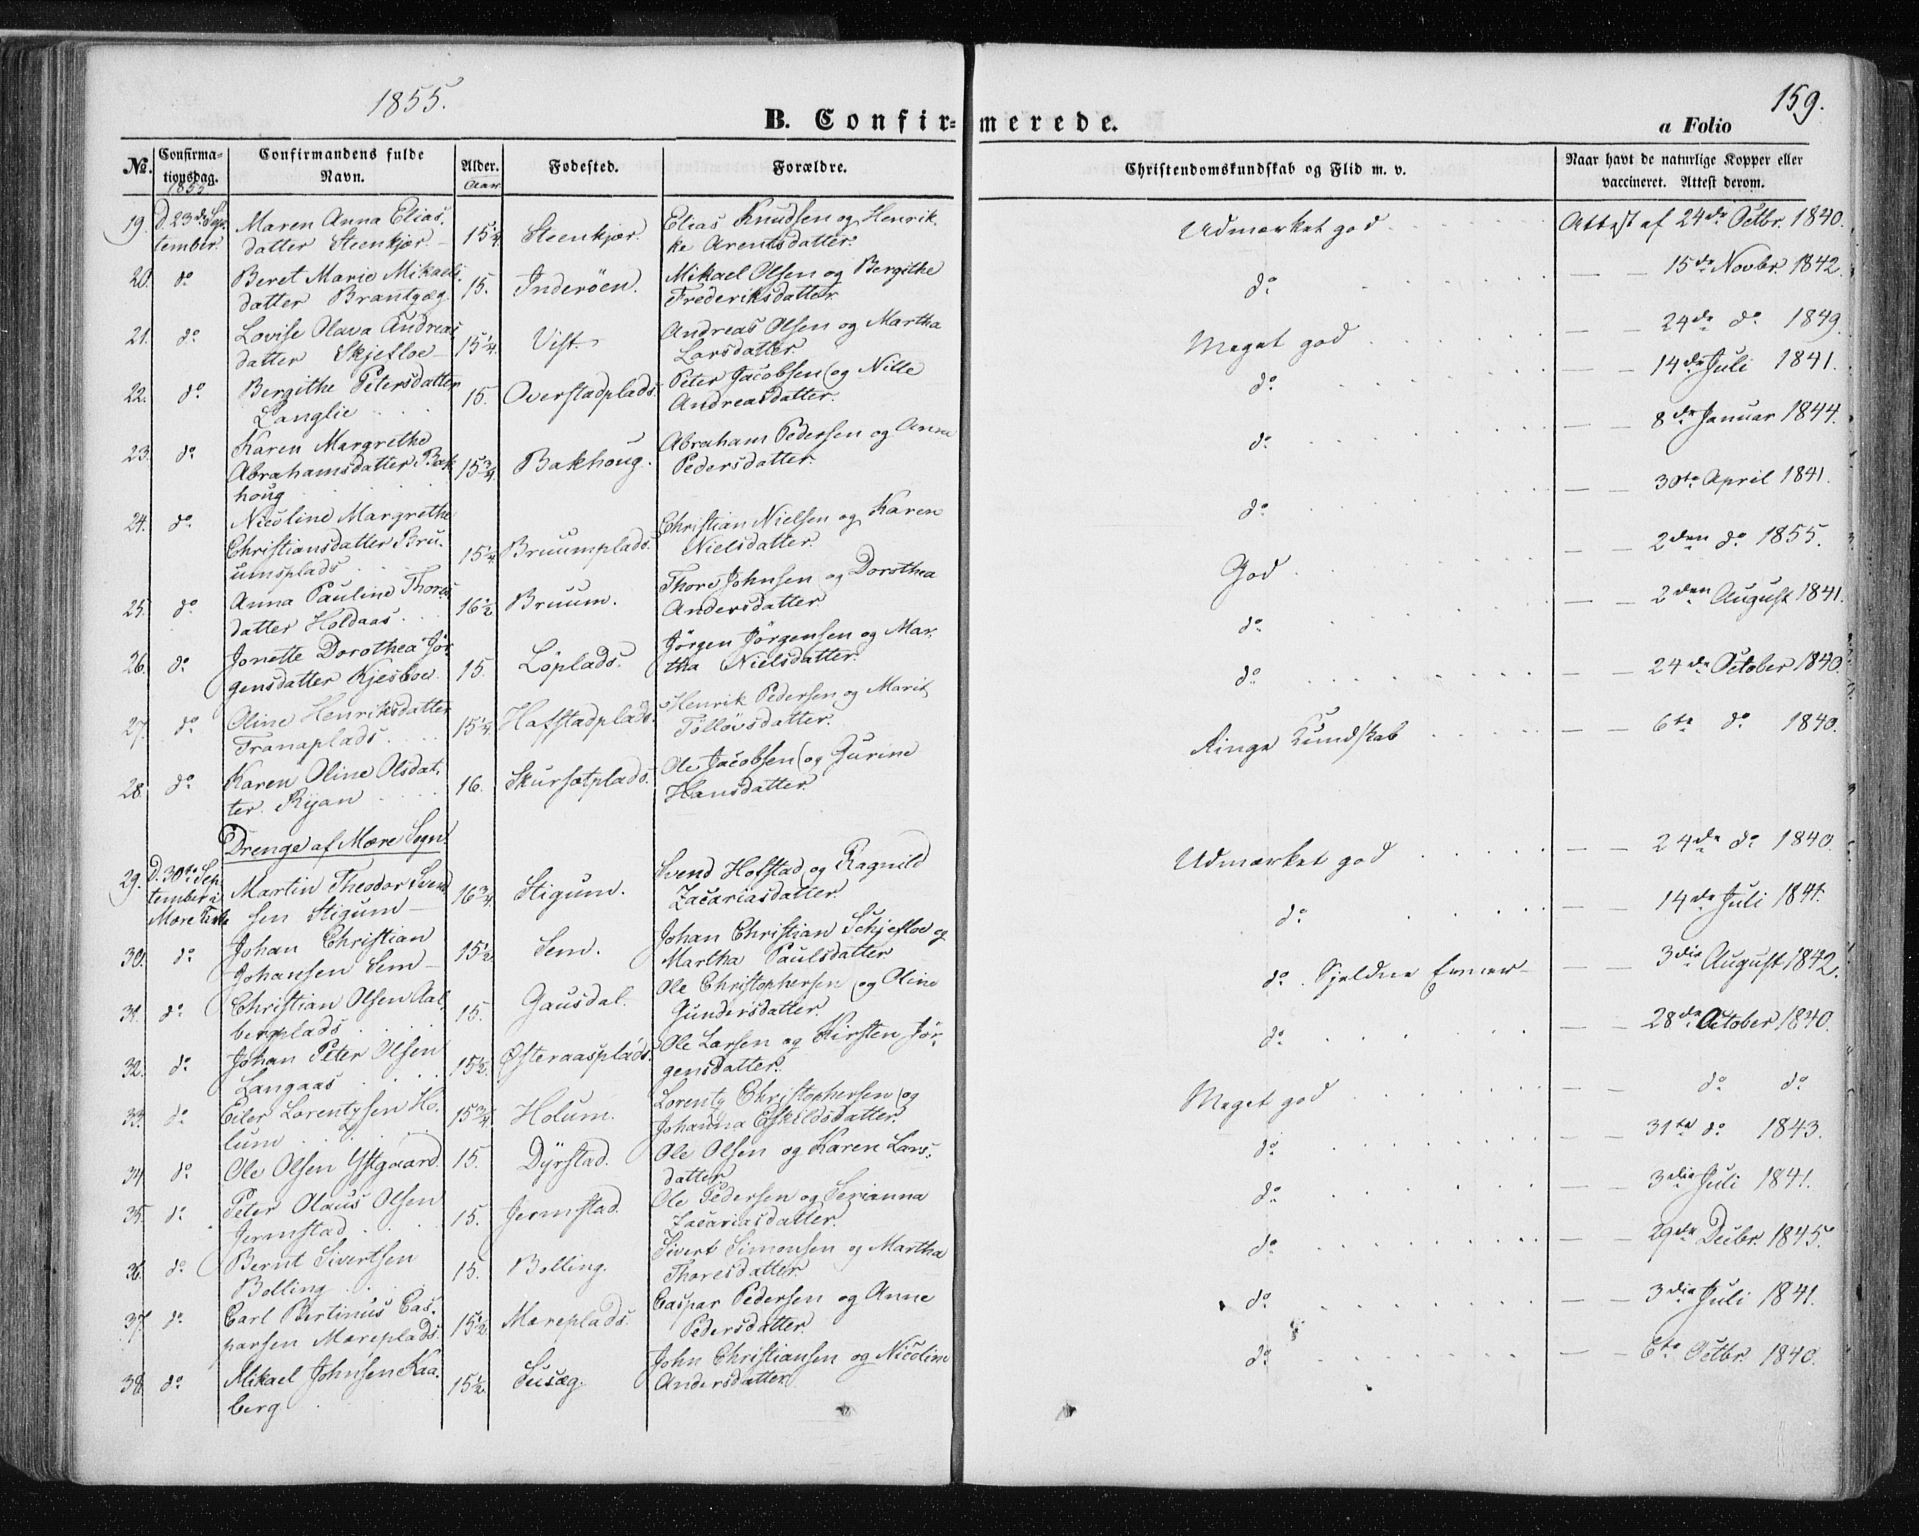 1855.
159.
B. Confirmerede.
a Folio
No. Confirmationsdag. Confirmandens fulde Navn. Alder. Fødested. Forældre. Christendomskundskab og Flid m. v. Naar havt de naturlige Kopper eller vaccineret. Attest derom.
1855 Aar
19. D. 23de September Maren Anna Eliasdatter Steenkjær 15 1/4 Steenkjær. Elias Knudsen og Henrikke Arentsdatter. Udmærket god Attest af 24de Octbr. 1840.
20. do Beret Marie Mikaelsdatter 15. Inderöen. Mikael Olsen og Bergithe Frederiksdatter do — — 15de Novbr. 1842.
21. do Lovise Olava Andreasdatter Skjefloe 15 1/4. Vist. Andreas Olsen og Martha Larsdatter. Meget god — — 24de do 1849.
22. do Bergithe Petersdatter Langlie 15. Overstadplads. Peter Jacobsen og Nille Andreasdatter. do — — 14de Juli 1841.
23. do Karen Margrethe Abrahamsdatter Bakhoug 15 3/4 Bakhoug. Abraham Pedersen og Anna Pedersdatter. do — — 8de Januar 1844.
24. do Nicoline Margrethe Christiansdatter Bruumsplads 15 1/4 Bruumplads. Christian Nielsen og Karen Nielsdatter. do — — 30te April 1841.
25. do Anna Pauline Thoresdatter Holdaas 16 1/2 Bruum. Thore Johnsen og Dorothea Andersdatter God — — 2den do 1855.
26. do Jonette Dorothea Jörgensdatter Kjesboe 15. Löplads. Jörgen Jörgensen og Martha Nielsdatter. do — — 2den August 1841.
27. do Oline Henriksdatter Tranaplads 15 1/4 Hafstadplads. Henrik Pedersen og Marit Tollövsdatter. do — — 24de October 1840.
28. do Karen Oline Olsdatter Ryan 16. Skursatplads. Ole Jacobsen og Gurine Hansdatter Ringe Kundskab — — 6te do 1840.
Drenge af Mære Sogn.
29. D. 30te September i Mære Kirke Martin Theodor Svendsen Stigum 16 3/4 Stigum. Svend Hofstad og Ragnild Zacariasdatter Udmærket god — — 24de do 1840.
30. do Johan Christian Johansen Sem 15 1/2 Sem. Johan Christian Schjefloe og Martha Paulsdatter do — — 14de Juli 1841.
31. do Christian Olsen Aalbergplads 15. Gausdal. Ole Christophersen og Oline Gundersdatter. do. Sjeldne Evner — — 3die August 1842.
32. do Johan Peter Olsen Langaas 15 1/2. Österaasplads. Ole Larsen og Kirsten Jörgensdatter. do — — 28de October 1840.
33. do Eiler Lorentzsen Holum 15 3/4 Holum. Lorentz Christophersen og Johanna Eskildsdatter. Meget god — — do do
34. do Ole Olsen Ystgaard. 15. Dyrstad. Ole Olsen og Karen Larsdatter do — — 31te do 1843.
35. do Peter Olaus Olsen Jermstad 15. Jermstad. Ole Pedersen og Serianna Zacariasdatter. do — — 3die Juli 1841.
36. do Bernt Sivertsen Bolling 15. Bolling. Sivert Simonsen og Martha Thoresdatter do — — 29de Decbr. 1845.
37. do Carl Bertinus Casparsen Mæreplads. 15 1/2 Mæreplads. Caspar Pedersen og Anne Pedersdatter. do — — 3die Juli 1841.
38. do Mikael Johnsen Kaaberg 15 1/2. Susæg. John Christiansen og Nicoline Andersdatter do — — 6te Octbr. 1840.